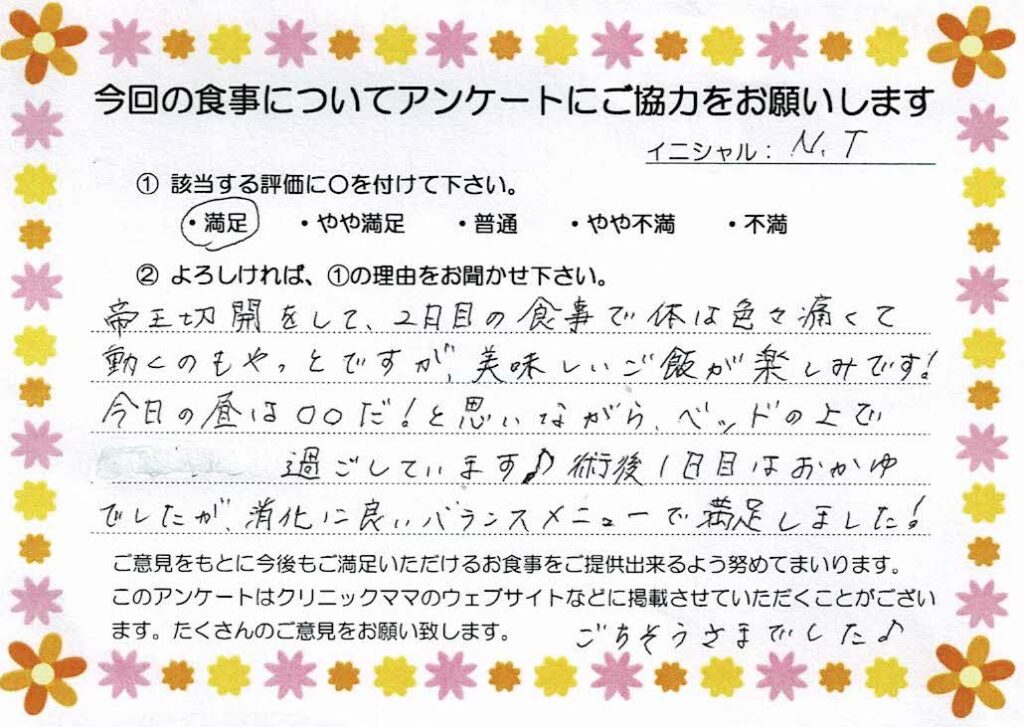 今回の食事についてアンケートにご協力をお願いします
イニシャル： N.T
① 該当する評価に〇を付けて下さい。
・満足 ・やや満足 ・普通 ・やや不満 ・不満
② よろしければ、①の理由をお聞かせ下さい。
帝王切開をして、2日目の食事で体は色々痛くて
動くのもやっとですが、美味しいご飯が楽しみです!
今日の昼は〇〇だ!と思いながら、ベッドの上で
過ごしています♪術後1日目はおかゆ
でしたが、消化に良いバランスメニューで満足しました!
ご意見をもとに今後もご満足いただけるお食事をご提供出来るよう努めてまいります。
このアンケートはクリニックママのウェブサイトなどに掲載させていただくことがござい
ます。たくさんのご意見をお願い致します。 ごちそうさまでした♪